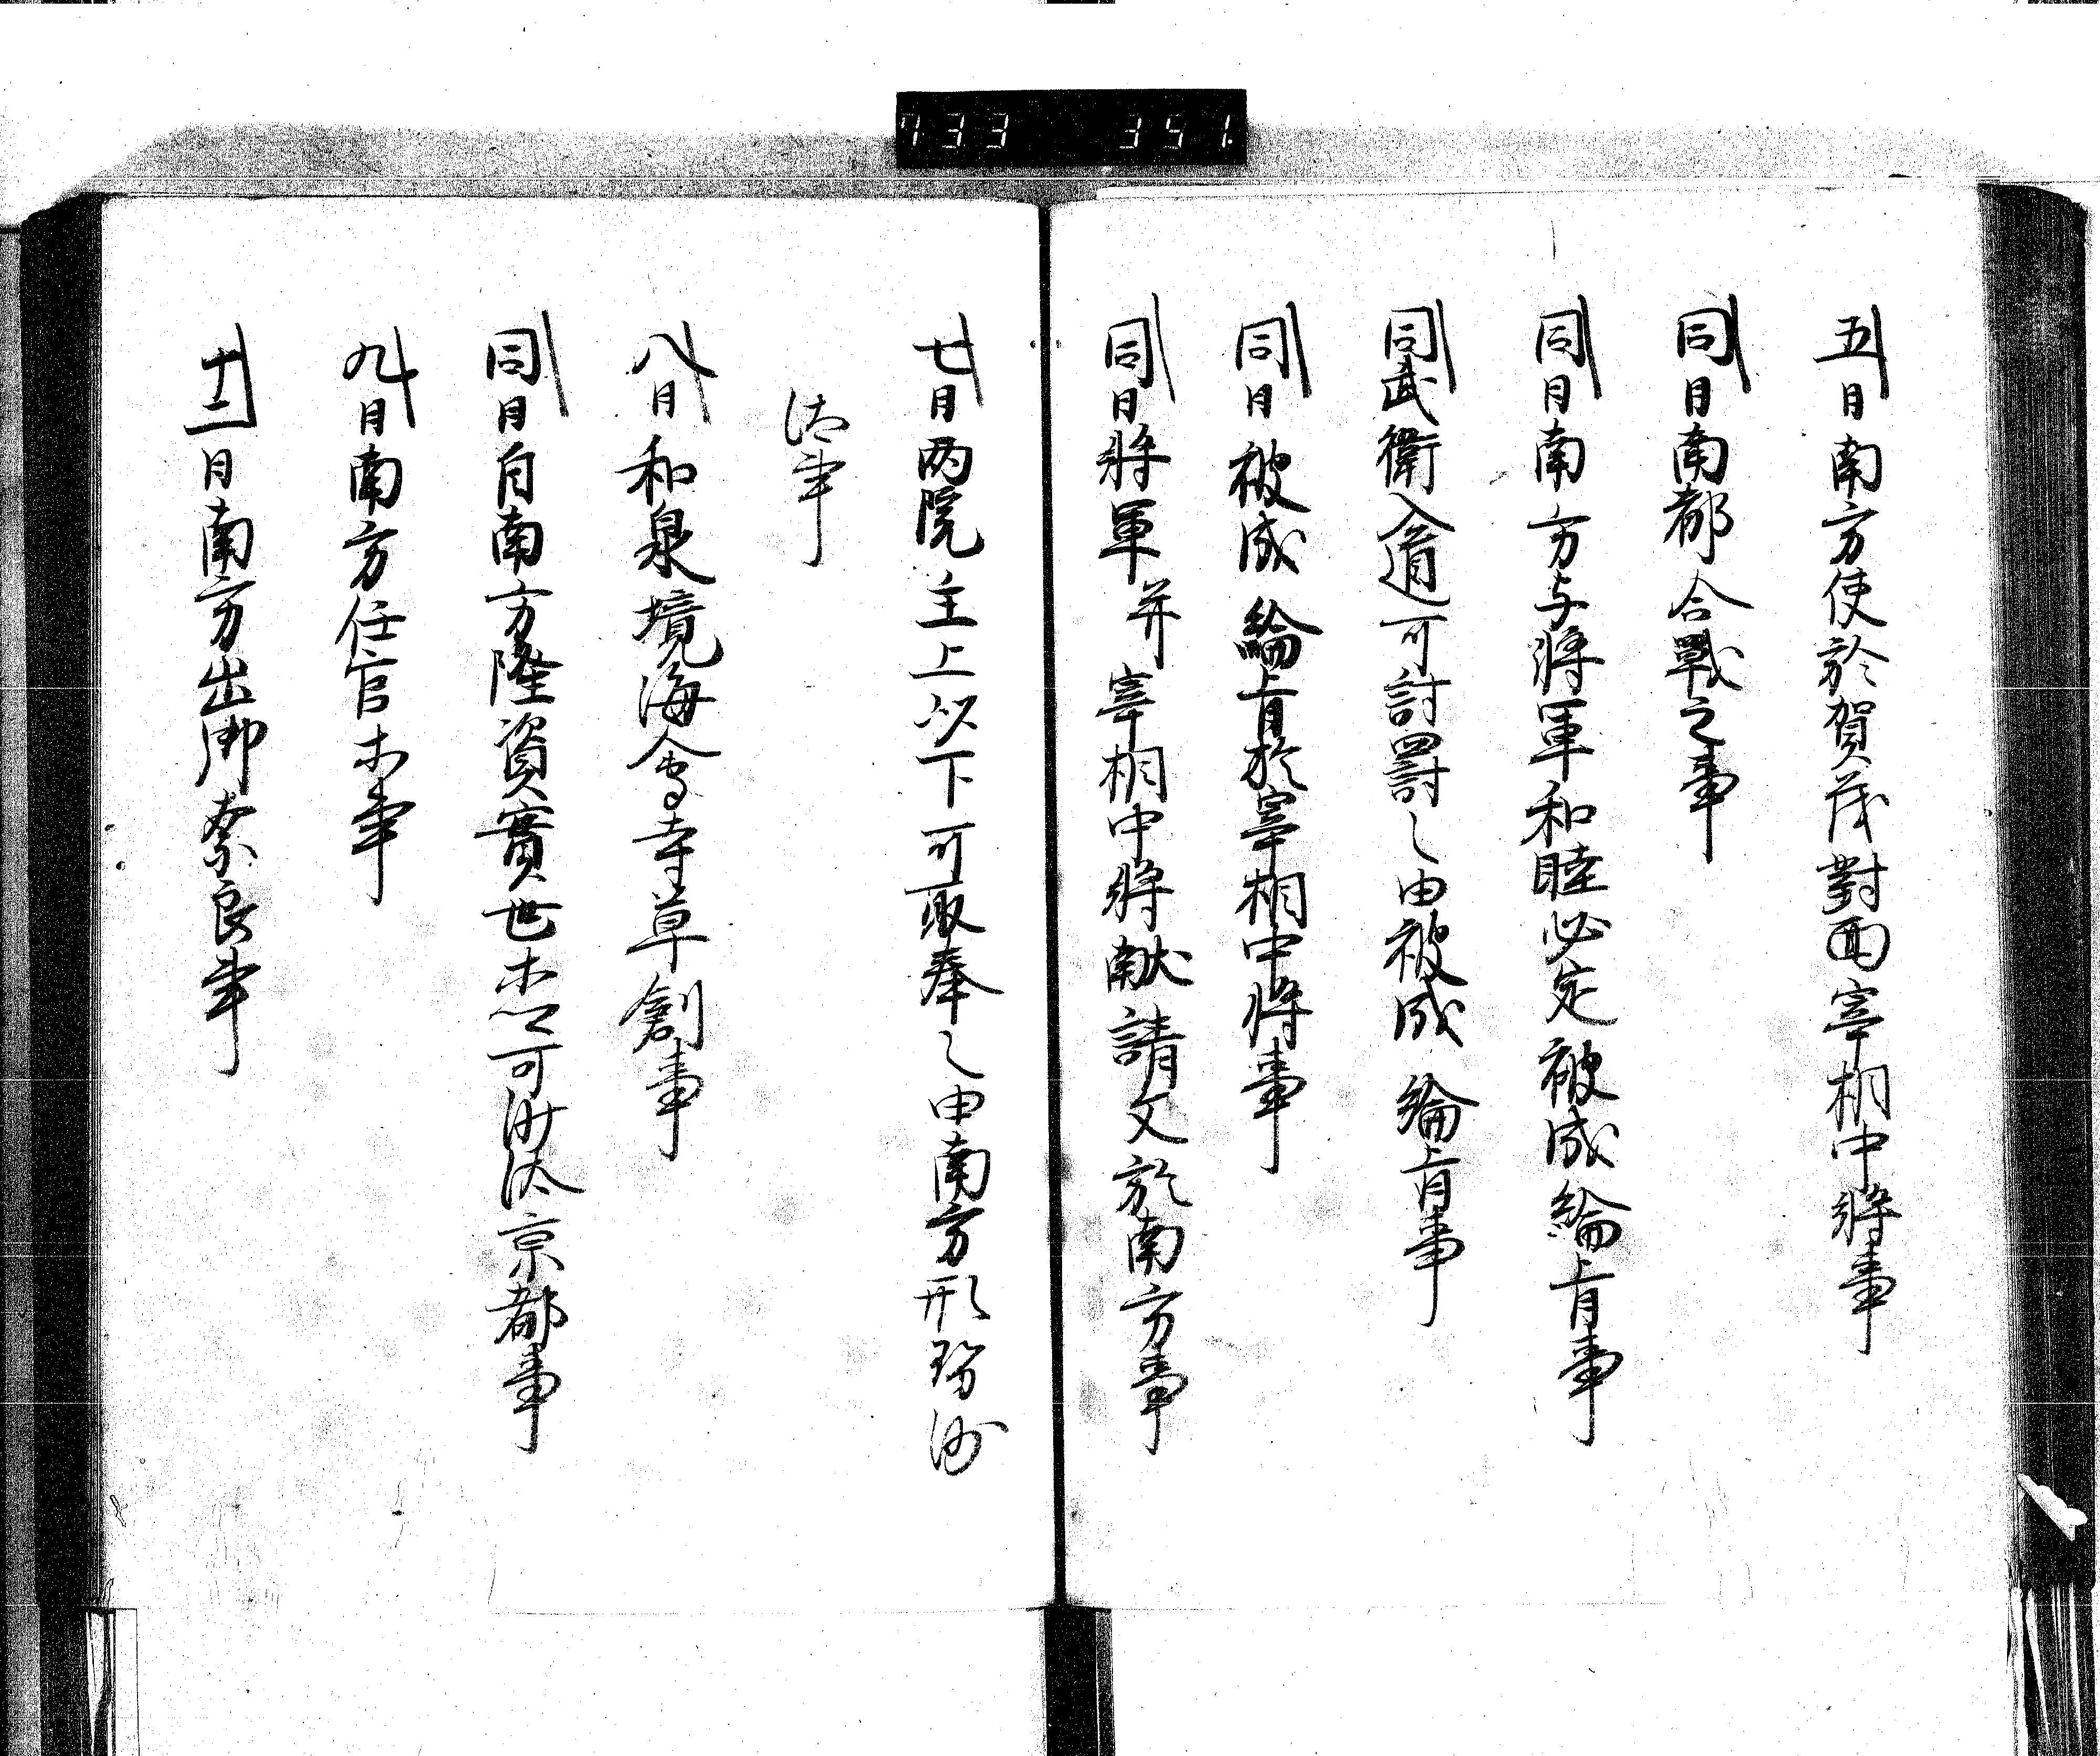 五日南方使於賀茂對面宰相中將事
同日南都合戰之事
同日南方与將軍和睦必定被成綸旨事
同武衛入道可討罸之由被成　綸旨事
同日被成　綸旨於宰相中將事
同日將軍并宰相中將献請文於南方事
七日両院主上以下可取奉之由南方形勢沙
汰事
八日和泉境海會寺草創事
同日自南方隆資實世等卿可沙汰京都事
九日南方任官等事
十二日南方出御奈良事
733 351